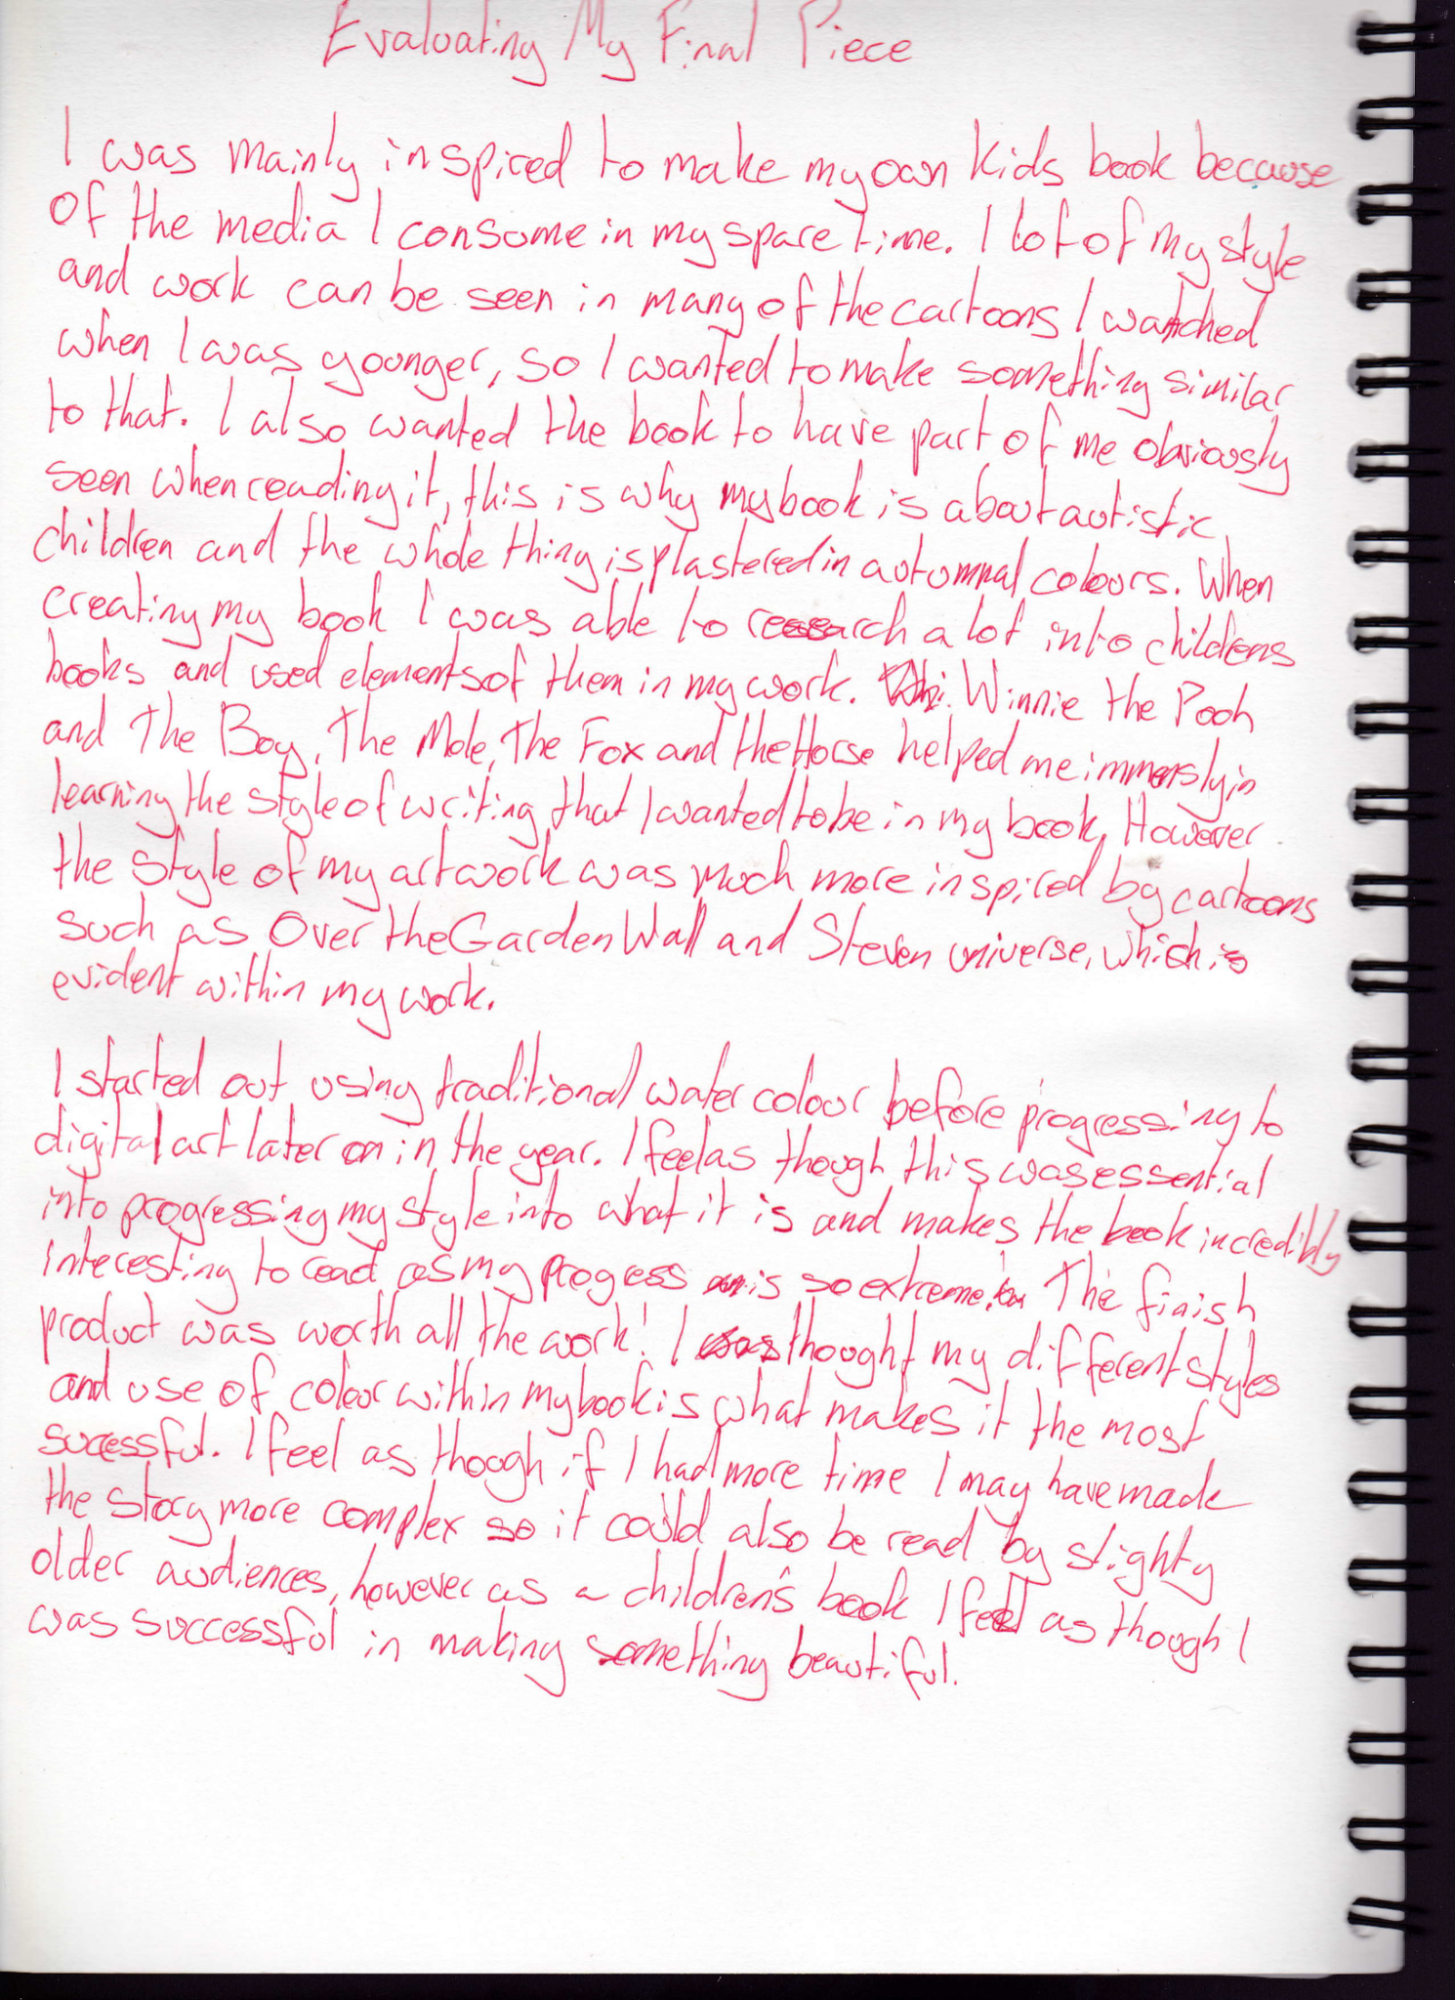 Evaluating My Final Piece
I was mainly inspired to make my own kids book because
of the media I consome in my spare time. I lot of my style
and work can be seen in many of the cartoons I watched
when I was younger, so I wanted to make something similar
to that. I also wanted the book to have part of me obviously
seen when reading it, this is why my book is about autistic
children and the whole thing is plastered in autumnal colours. When
creating my book I was able to research a lot into childrens
books and used elements of them in my work. Winnie the Pooh
and The Boy, The Mole, The Fox and the Horse helped me immersly in
learning the style of writing that I wanted to be in my book, However
the style of my artwork was much more inspired by cartoons
such as Over the Garden Wall and Steven universe, which is
evident within my work.
I started out using traditional water colour before progressing to
digital art later on in the year. I feel as though this was essential
into progressing my style into what it is and makes the book incredibly
interesting to read as my progess is so extreme. The finish
product was worth all the work! I thought my different styles
and use of colour within my book is what makes it the most
sucessful. I feel as though if I had more time I may have made
the story more complex so it could also be read by slighty
older audiences, however as a children's book I feel as though I
was successful in making something beautiful.